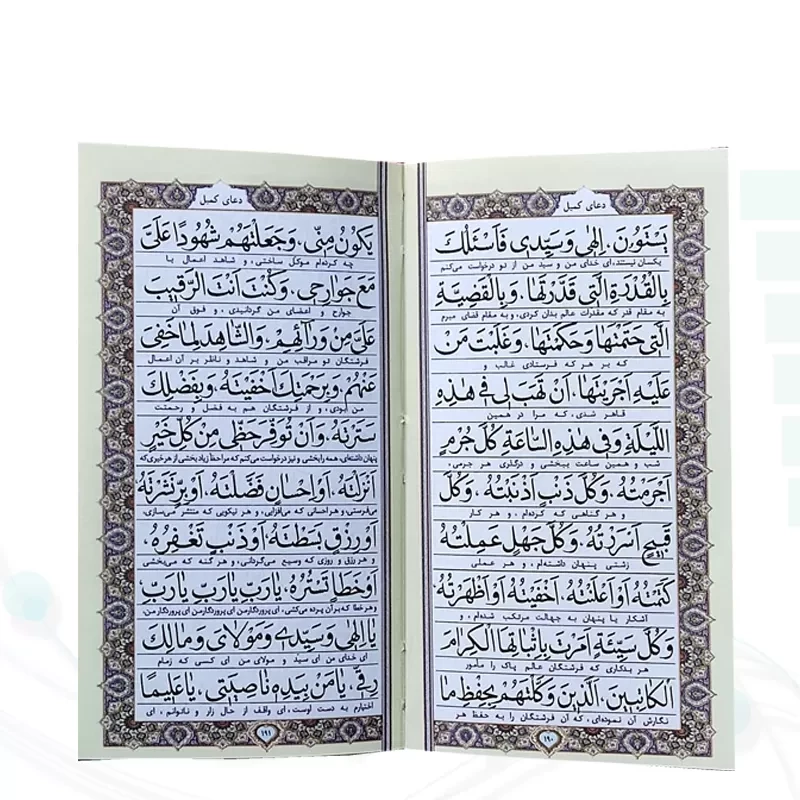 دعای کمیل
یَسْتَوُونَ، اِلٰهی وَ سَیِّدی فَاَسْئَلُکَ
یکسان نیستند، ای خدای من و سید من از تو درخواست می‌کنم
بِالْقُدْرَةِ الَّتی قَدَّرْتَهٰا، وَ بِالْقَضِیَّةِ
به مقام قدر که مقدرات عالم بدان کردی، و به مقام قضای مبرم
الَّتی حَتَمْتَهٰا وَ حَکَمْتَهٰا، وَ غَلَبْتَ مَنْ
که بر هر که فرستادی غالب و
عَلَیْهِ اَجْرَیْتَهٰا، اَنْ تَهَبَ لی فی هٰذِهِ
قاهر شدی، که مرا در همین
اللَّیْلَةِ وَ فی هٰذِهِ السّٰاعَةِ کُلَّ جُرْمٍ
شب و همین ساعت ببخشی و درگذری هر جرمی،
اَجْرَمْتُهُ، وَ کُلَّ ذَنْبٍ اَذْنَبْتُهُ، وَ کُلَّ
و هر گناهی که کرده‌ام، و هر کار
قَبیحٍ اَسْرَرْتُهُ، وَ کُلَّ جَهْلٍ عَمِلْتُهُ
زشتی پنهان داشته‌ام، و هر عملی
کَتَمْتُهُ اَوْ اَعْلَنْتُهُ، اَخْفَیْتُهُ اَوْ اَظْهَرْتُهُ،
آشکار یا پنهان به جهالت مرتکب شده‌ام، و
وَ کُلَّ سَیِّئَةٍ اَمَرْتَ بِاِثْبٰاتِهَا الْکِرٰامَ
هر بدکاری که فرشتگان عالم پاک را مأمور
الْکٰاتِبینَ، اَلَّذینَ وَ کَّلْتَهُمْ بِحِفْظِ مٰا
نگارش آن نموده‌ای، که آن فرشتگان را به حفظ هر
۱۹۰
دعای کمیل
یَکُونُ مِنّی، وَ جَعَلْتَهُمْ شُهُودًا عَلَیَّ
چه کرده‌ام موکل ساختی، و شاهد اعمال با
مَعَ جَوٰارِحی، وَ کُنْتَ اَنْتَ الرَّقیبَ
جوارح و اعضای من گردانیدی، و فوق آن
عَلَیَّ مِنْ وَرٰآئِهِمْ، وَ الشّٰاهِدَ لِمٰا خَفِیَ
فرشتگان تو مراقب من و شاهد و ناظر بر آن اعمال
عَنْهُمْ، وَ بِرَحْمَتِکَ اَخْفَیْتَهُ، وَ بِفَضْلِکَ
من بودی، و از فرشتگان هم به فضل و رحمتت
سَتَرْتَهُ، وَ اَنْ تُوَفِّرَ حَظّی مِنْ کُلِّ خَیْرٍ
پنهان داشته‌ای، همه را ببخشی و نیز درخواست می‌کنم که مرا حظ زیاد بخشی از هر خیری که
اَنْزَلْتَهُ، اَوْ اِحْسٰانٍ فَضَّلْتَهُ، اَوْ بِرٍّ نَشَرْتَهُ
می‌فرستی، و هر احسانی که می‌افزایی، و هر نیکویی که منتشر می‌سازی،
اَوْ رِزْقٍ بَسَطْتَهُ اَوْ ذَنْبٍ تَغْفِرُهُ،
و هر رزق و روزی که وسیع می‌گردانی، و هر گنه که می‌بخشی
اَوْ خَطَإٍ تَسْتُرُهُ، یٰا رَبِّ یٰا رَبِّ یٰا رَبِّ
و هر خطا که بر آن پرده می‌کشی، ای پروردگار من ای پروردگار من ای پروردگار من،
یٰا اِلٰهی وَ سَیِّدی وَ مَوْلٰایَ وَ مٰالِکَ
ای خدای من ای سید و مولای من ای کسی که زمام
رِقّی، یٰا مَنْ بِیَدِهِ نٰاصِیَتی، یٰا عَلیمًا
اختیارم به دست اوست، ای واقف از حال زار و ناتوانم، ای
۱۹۱